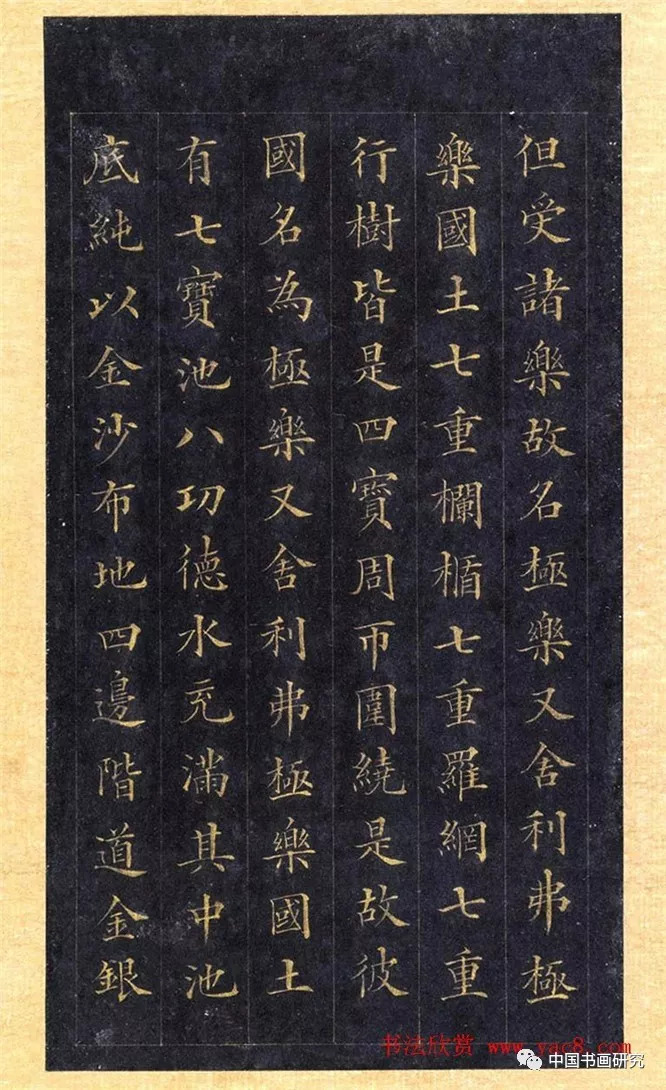 但受諸樂故名極樂又舍利弗極
樂國土七重欄楯七重羅網七重
行樹皆是四寶周帀圍繞是故彼
國名為極樂又舍利弗極樂國土
有七寶池八功德水充滿其中池
底純以金沙布地四邊階道金銀
书法欣赏 www.yac8.com
中国书画研究